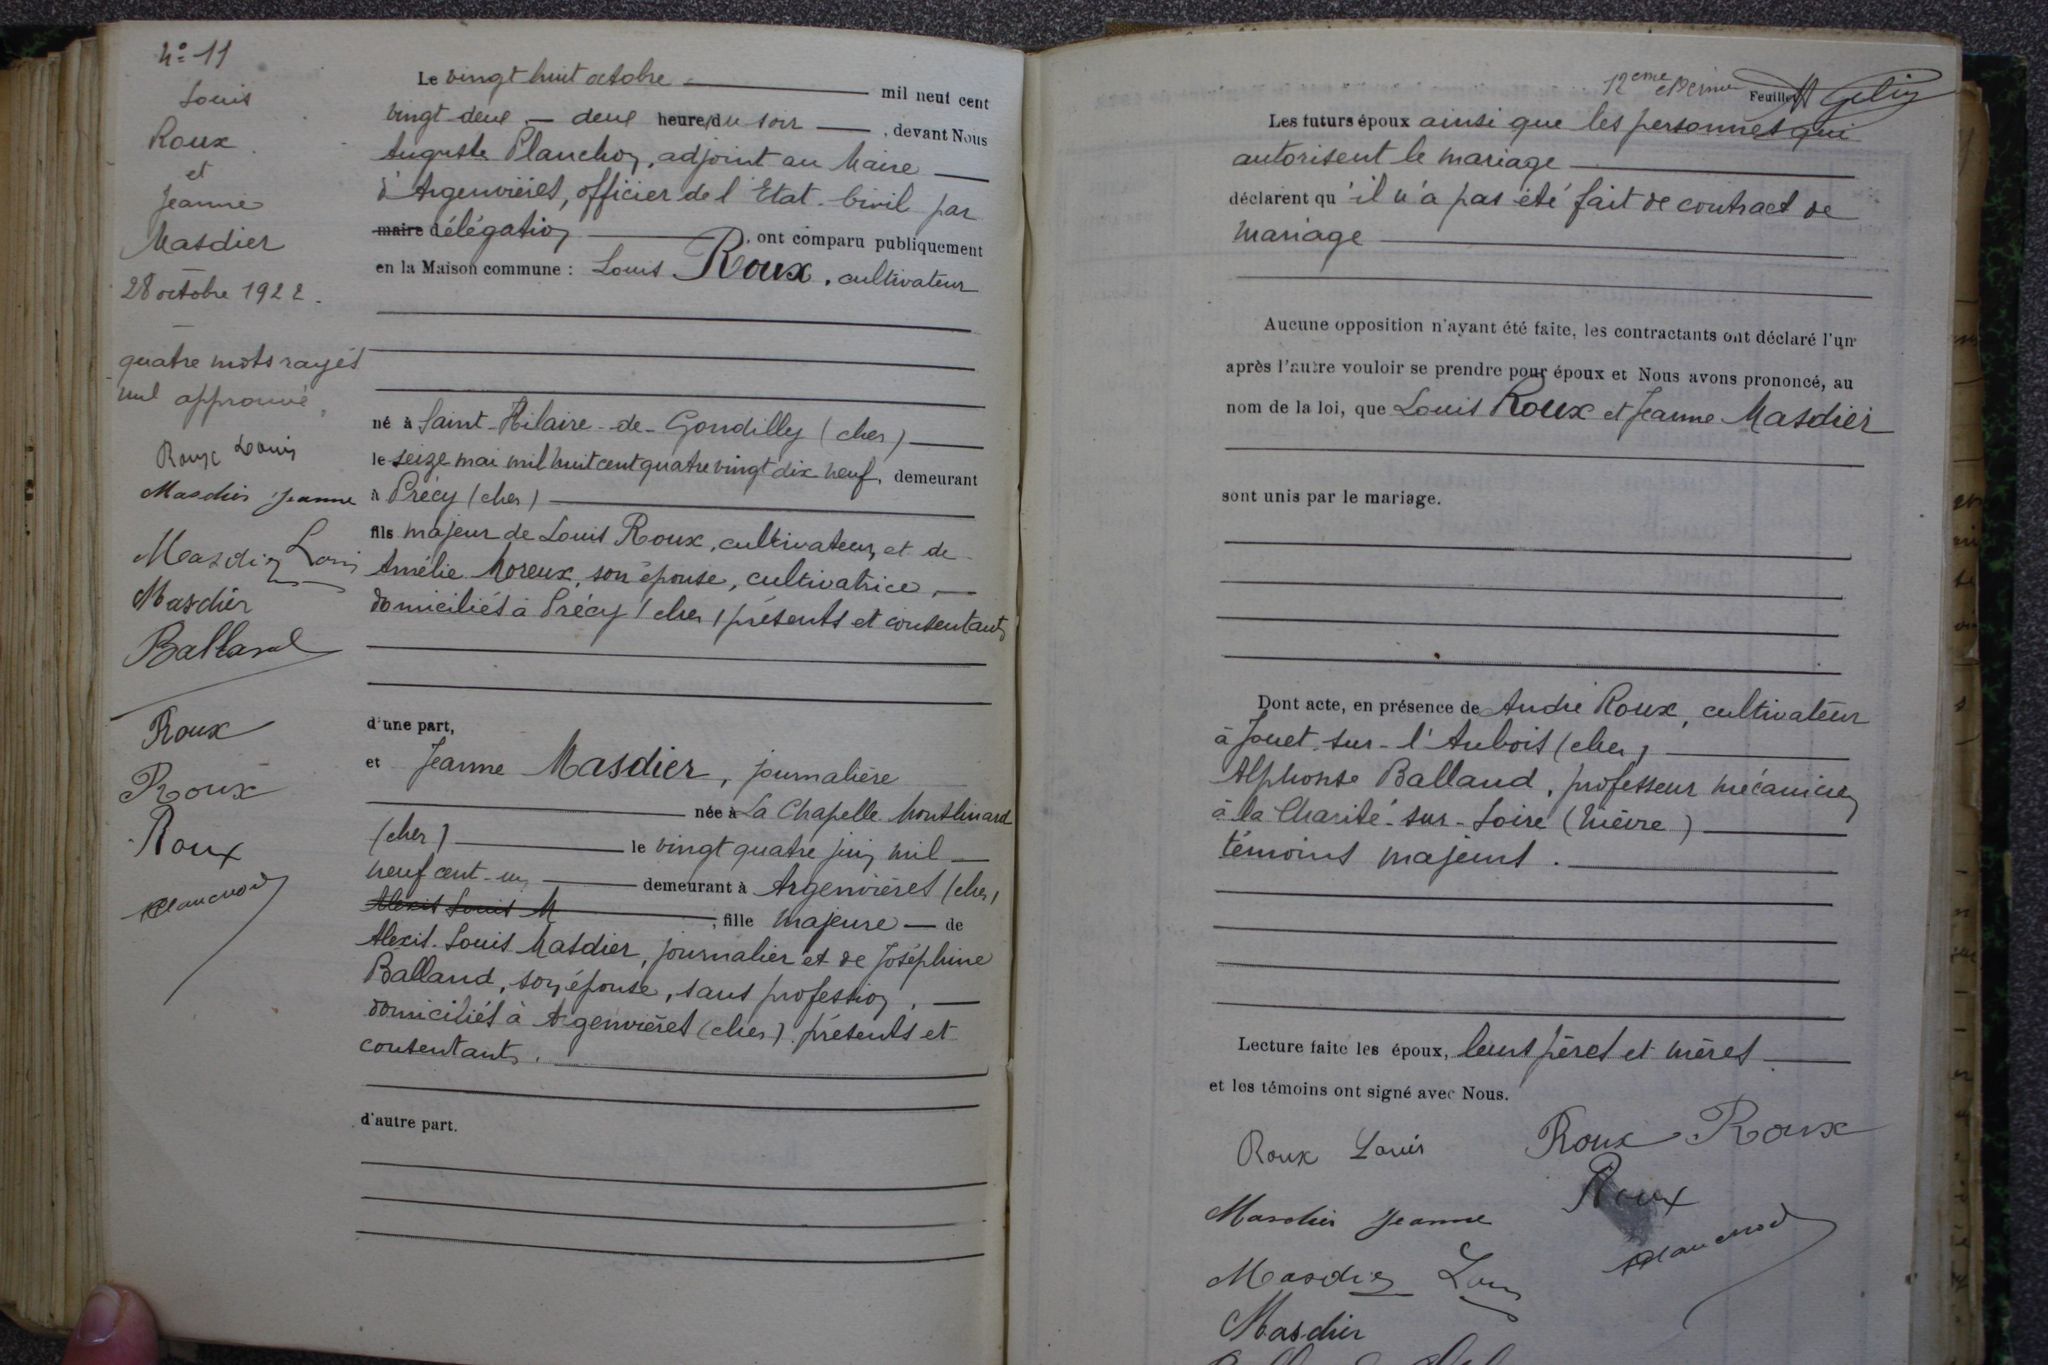 N° 11
Louis
Roux
et
Jeanne
Masdier
28 octobre 1922.
quatre mots rayés
nul approuvé
Roux Louis
Masdier Jeanne
Masdier Louis
Masdier
Balland
Roux
Roux
Roux
Planchon
Le vingt huit octobre mil neuf cent
vingt-deux — deux heure du soir —, devant Nous
Auguste Planchon, adjoint au Maire
d'Argenvières, officier de l'Etat-Civil par
maire délégation, ont comparu publiquement
en la Maison commune : Louis Roux, cultivateur
né à Saint-Hilaire-de-Gondilly (cher)
le seize mai mil huit cent quatre vingt dix neuf, demeurant
à Précy (cher)
fils majeur de Louis Roux, cultivateur, et de
Amélie Moreux, son épouse, cultivatrice,
domiciliés à Précy (cher) présents et consentants
d'une part,
et Jeanne Masdier, journalière
née à La Chapelle Montlinard
(cher) le vingt quatre juin mil
neuf cent-un demeurant à Argenvières (cher)
Alexis Louis M ; fille majeure — de
Alexis-Louis Masdier, journalier et de Joséphine
Balland, son épouse, sans profession,
domiciliés à Argenvières (cher) présents et
consentants.
d'autre part.
12eme et dernier Feuillet
Les futurs époux ainsi que les personnes qui
autorisent le mariage
déclarent qu'il n'a pas été fait de contract de
mariage
Aucune opposition n'ayant été faite, les contractants ont déclaré l'un
après l'autre vouloir se prendre pour époux et Nous avons prononcé, au
nom de la loi, que Louis Roux et Jeanne Masdier
sont unis par le mariage.
Dont acte, en présence de André Roux, cultivateur
à Jouet-sur-l'Aubois (cher)
Alphonse Balland, professeur mécanicien
à la Charité-sur-Loire (Nièvre)
témoins majeurs.
Lecture faite les époux, leurs pères et mères
et les témoins ont signé avec Nous.
Roux Louis Roux Roux
Roux
Masdier Jeanne
Planchon
Masdier Louis
Masdier